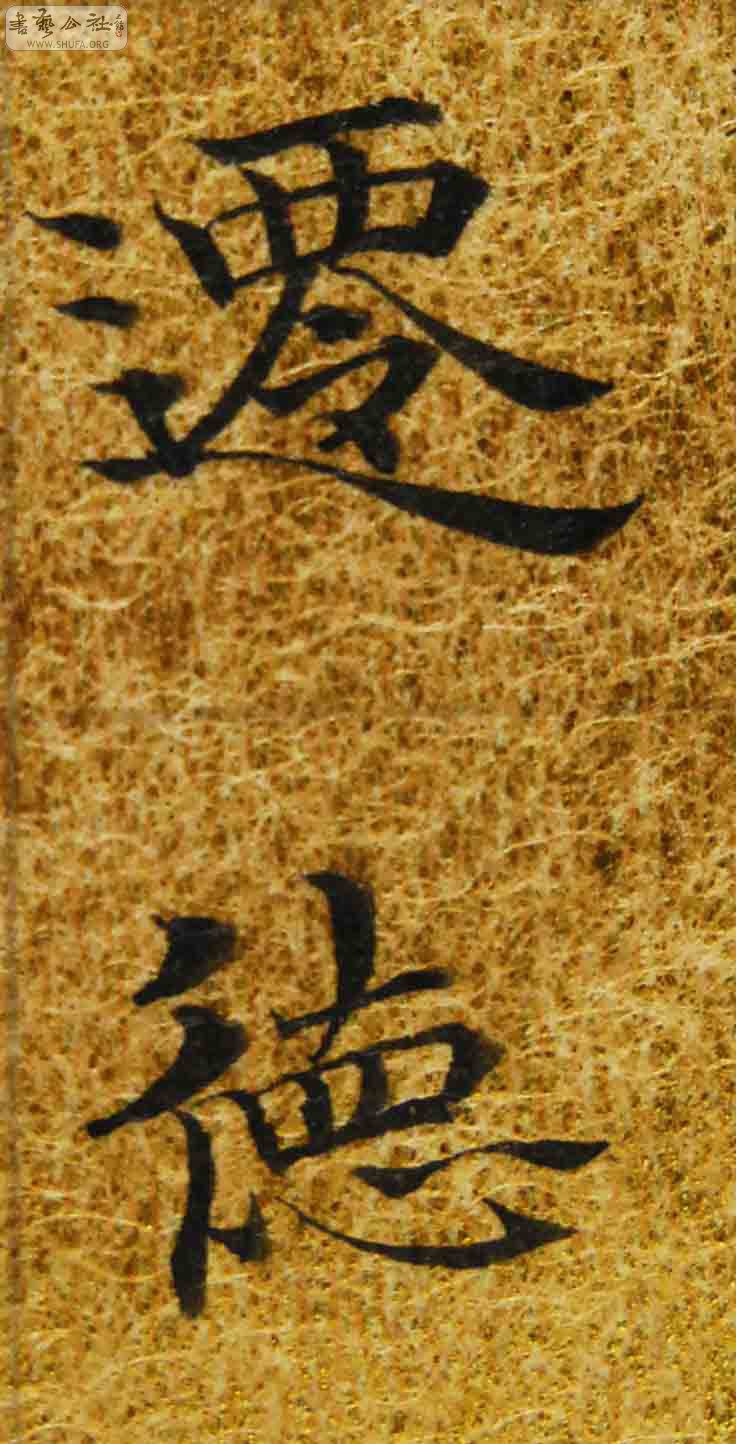 書藝公社
WWW.SHUFA.ORG
遷
德